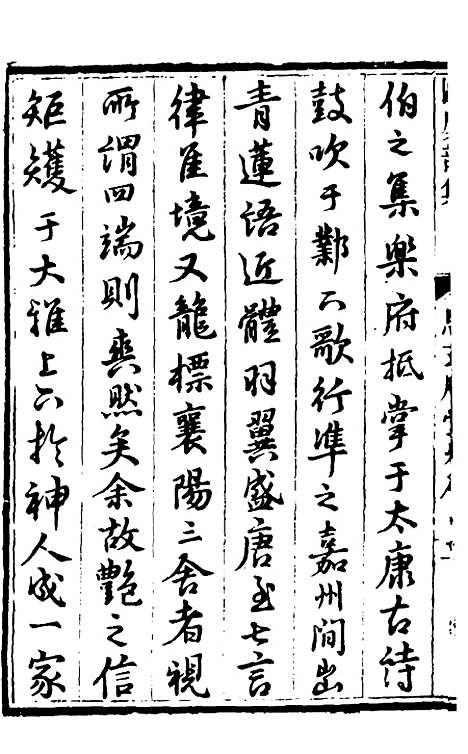 伯之集樂府抵掌于太康古詩
鼓吹于鄴下歌行準之嘉州間出
青蓮語近體羽翼盛唐至七言
律隹境又龍標襄陽三舍者視
所謂四端則爽然矣余故艷之信
矩矱于大雅上下於神人成一家